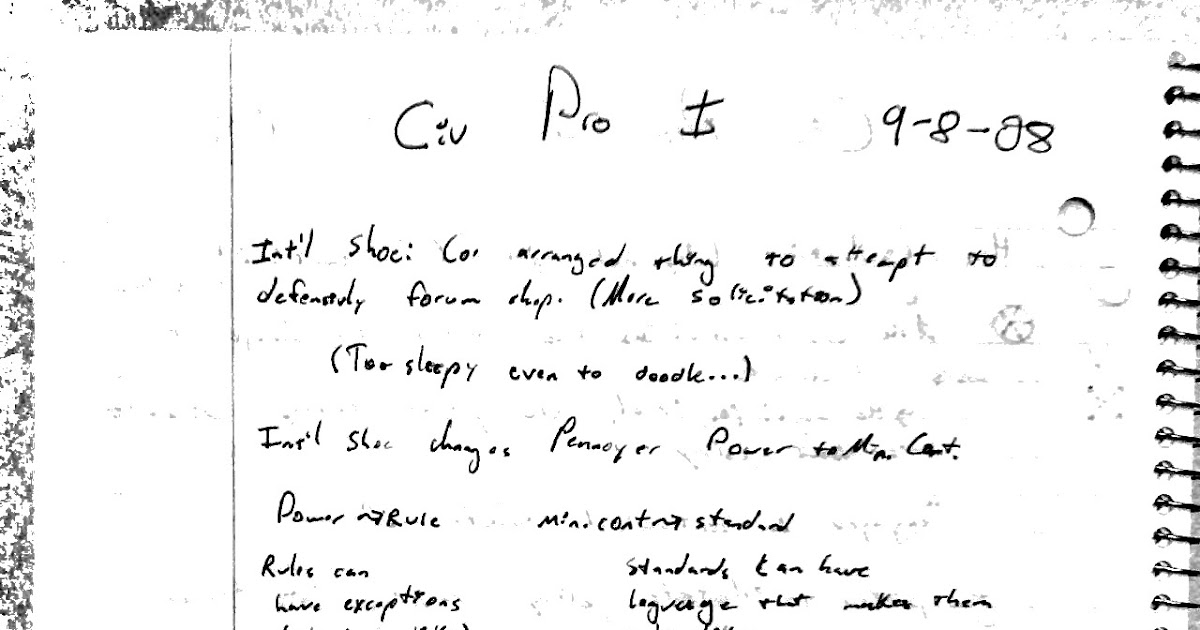 Civ Pro I 9-8-08
Int'l Shoe: Co. arranged thing to attempt to
defensivly forum shop. (More solicitation)
(Too sleepy even to doodle...)
Int'l Shoe changes Pennoyer Power to Min. Cont.
Power → Rule Min. cont → standard
Rules can standards can have
have exceptions language that makes them